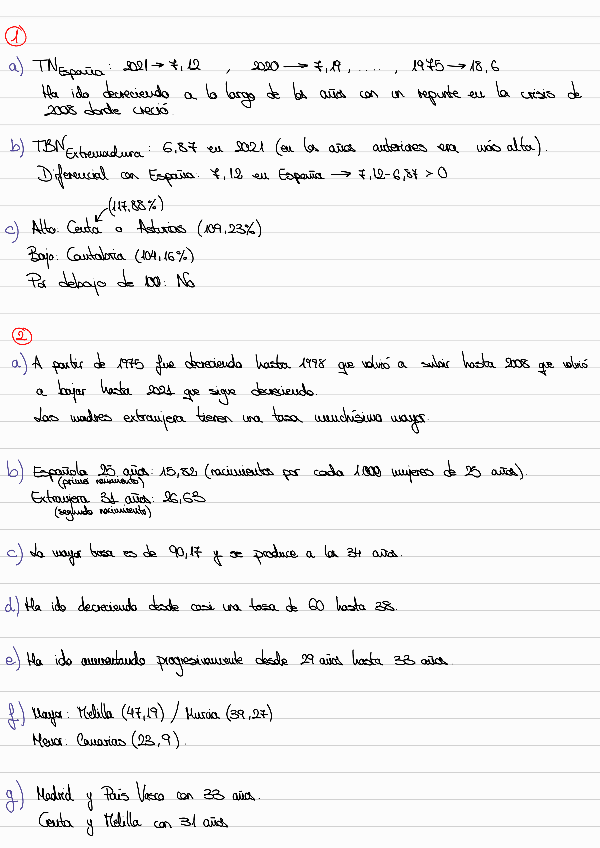 1
a) TN España: 2021 → 7,12 , 2020 → 7,19 , .... , 1975 → 18,6
Ha ido decreciendo a lo largo de los años con un repunte en la crisis de
2008 donde creció.
b) TBN Extremadura: 6,87 en 2021 (en los años anteriores era más alta).
Diferencial con España: 7,12 en España → 7,12-6,87 > 0
(117,88%)
c) Alto: Ceuta o Asturias (109,23%)
Bajo: Cantabria (104,16%)
Por debajo de 100: No
2
a) A partir de 1975 fue decreciendo hasta 1998 que volvió a subir hasta 2008 que volvió
a bajar hasta 2021 que sigue decreciendo.
Las madres extranjera tienen una tasa muchísimo mayor.
b) Española 25 años: 15,82 (nacimientos por cada 1.000 mujeres de 25 años).
(primer nacimiento)
Extranjera 31 años: 26,63
(segundo nacimiento)
c) La mayor tasa es de 90,17 y se produce a los 34 años.
d) Ha ido decreciendo desde casi una tasa de 60 hasta 38.
e) Ha ido aumentando progresivamente desde 29 años hasta 33 años.
f) Mayor: Melilla (47,19) / Murcia (39,27)
Menor: Canarias (23,9).
g) Madrid y País Vasco con 33 años.
Ceuta y Melilla con 31 años